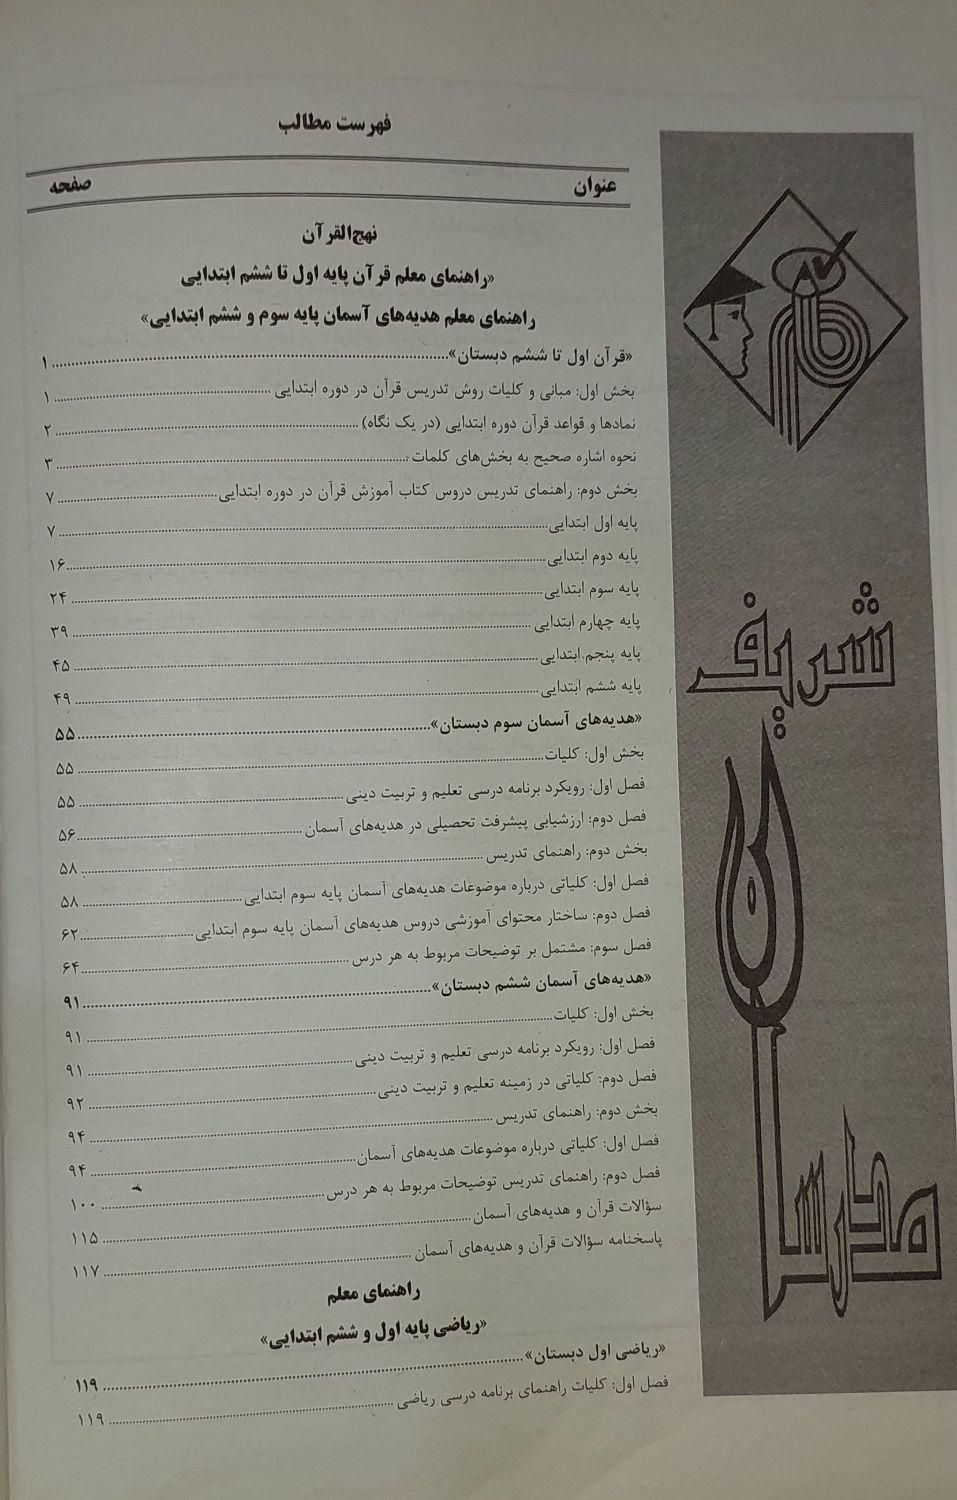 فهرست مطالب
عنوان صفحه
نهج‌القرآن
«راهنمای معلم قرآن پایه اول تا ششم ابتدایی
راهنمای معلم هدیه‌های آسمان پایه سوم و ششم ابتدایی»
«قرآن اول تا ششم دبستان» ۱
بخش اول: مبانی و کلیات روش تدریس قرآن در دوره ابتدایی ۱
نمادها و قواعد قرآن دوره ابتدایی (در یک نگاه) ۲
نحوه اشاره صحیح به بخش‌های کلمات ۳
بخش دوم: راهنمای تدریس دروس کتاب آموزش قرآن در دوره ابتدایی ۷
پایه اول ابتدایی ۷
پایه دوم ابتدایی ۱۶
پایه سوم ابتدایی ۲۴
پایه چهارم ابتدایی ۳۹
پایه پنجم ابتدایی ۴۵
پایه ششم ابتدایی ۴۹
«هدیه‌های آسمان سوم دبستان» ۵۵
بخش اول: کلیات ۵۵
فصل اول: رویکرد برنامه درسی تعلیم و تربیت دینی ۵۵
فصل دوم: ارزشیابی پیشرفت تحصیلی در هدیه‌های آسمان ۵۶
بخش دوم: راهنمای تدریس ۵۸
فصل اول: کلیاتی درباره موضوعات هدیه‌های آسمان پایه سوم ابتدایی ۵۸
فصل دوم: ساختار محتوای آموزشی دروس هدیه‌های آسمان پایه سوم ابتدایی ۶۲
فصل سوم: مشتمل بر توضیحات مربوط به هر درس ۶۴
«هدیه‌های آسمان ششم دبستان» ۹۱
بخش اول: کلیات ۹۱
فصل اول: رویکرد برنامه درسی تعلیم و تربیت دینی ۹۱
فصل دوم: کلیاتی در زمینه تعلیم و تربیت دینی ۹۲
بخش دوم: راهنمای تدریس ۹۴
فصل اول: کلیاتی درباره موضوعات هدیه‌های آسمان ۹۴
فصل دوم: راهنمای تدریس توضیحات مربوط به هر درس ۱۰۰
سؤالات قرآن و هدیه‌های آسمان ۱۱۵
پاسخنامه سؤالات قرآن و هدیه‌های آسمان ۱۱۷
راهنمای معلم
«ریاضی پایه اول و ششم ابتدایی»
«ریاضی اول دبستان» ۱۱۹
فصل اول: کلیات راهنمای برنامه درسی ریاضی ۱۱۹
مدرسان
شریف